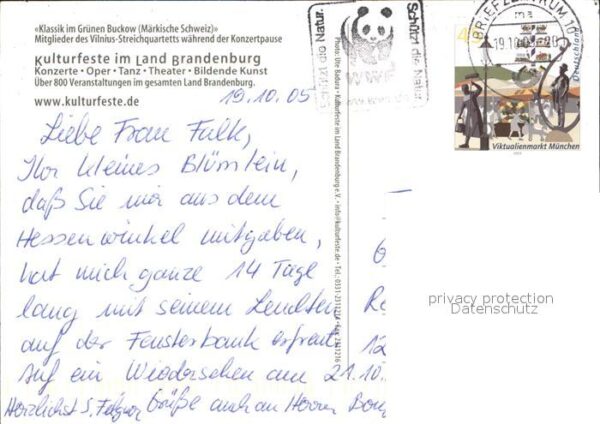 «Klassik im Grünen Buckow (Märkische Schweiz)»
Mitglieder des Vilnius-Streichquartetts während der Konzertpause
Kulturfeste im Land Brandenburg
Konzerte • Oper • Tanz • Theater • Bildende Kunst
Über 800 Veranstaltungen im gesamten Land Brandenburg.
www.kulturfeste.de
19.10.05
Liebe Frau Falk,
Ihr kleines Blümlein,
daß Sie mir aus dem
Hessenwinkel mitgaben,
hat mich ganze 14 Tage
lang mit seinem Leuchten
auf der Fensterbank erfreut
Auf ein Wiedersehen am 21.10.
Herzlichst S. Grüße auch an Herrn
Photo: Ute Badura • Kulturfeste im Land Brandenburg e.V. • info@kulturfeste.de • Tel.
Schützt die Natur.
WWF
Schützt die Natur.
BRIEFZENTRUM 10
19.10.
Deutschland
Viktualienmarkt München
6
Re
12
privacy protection
Datenschutz